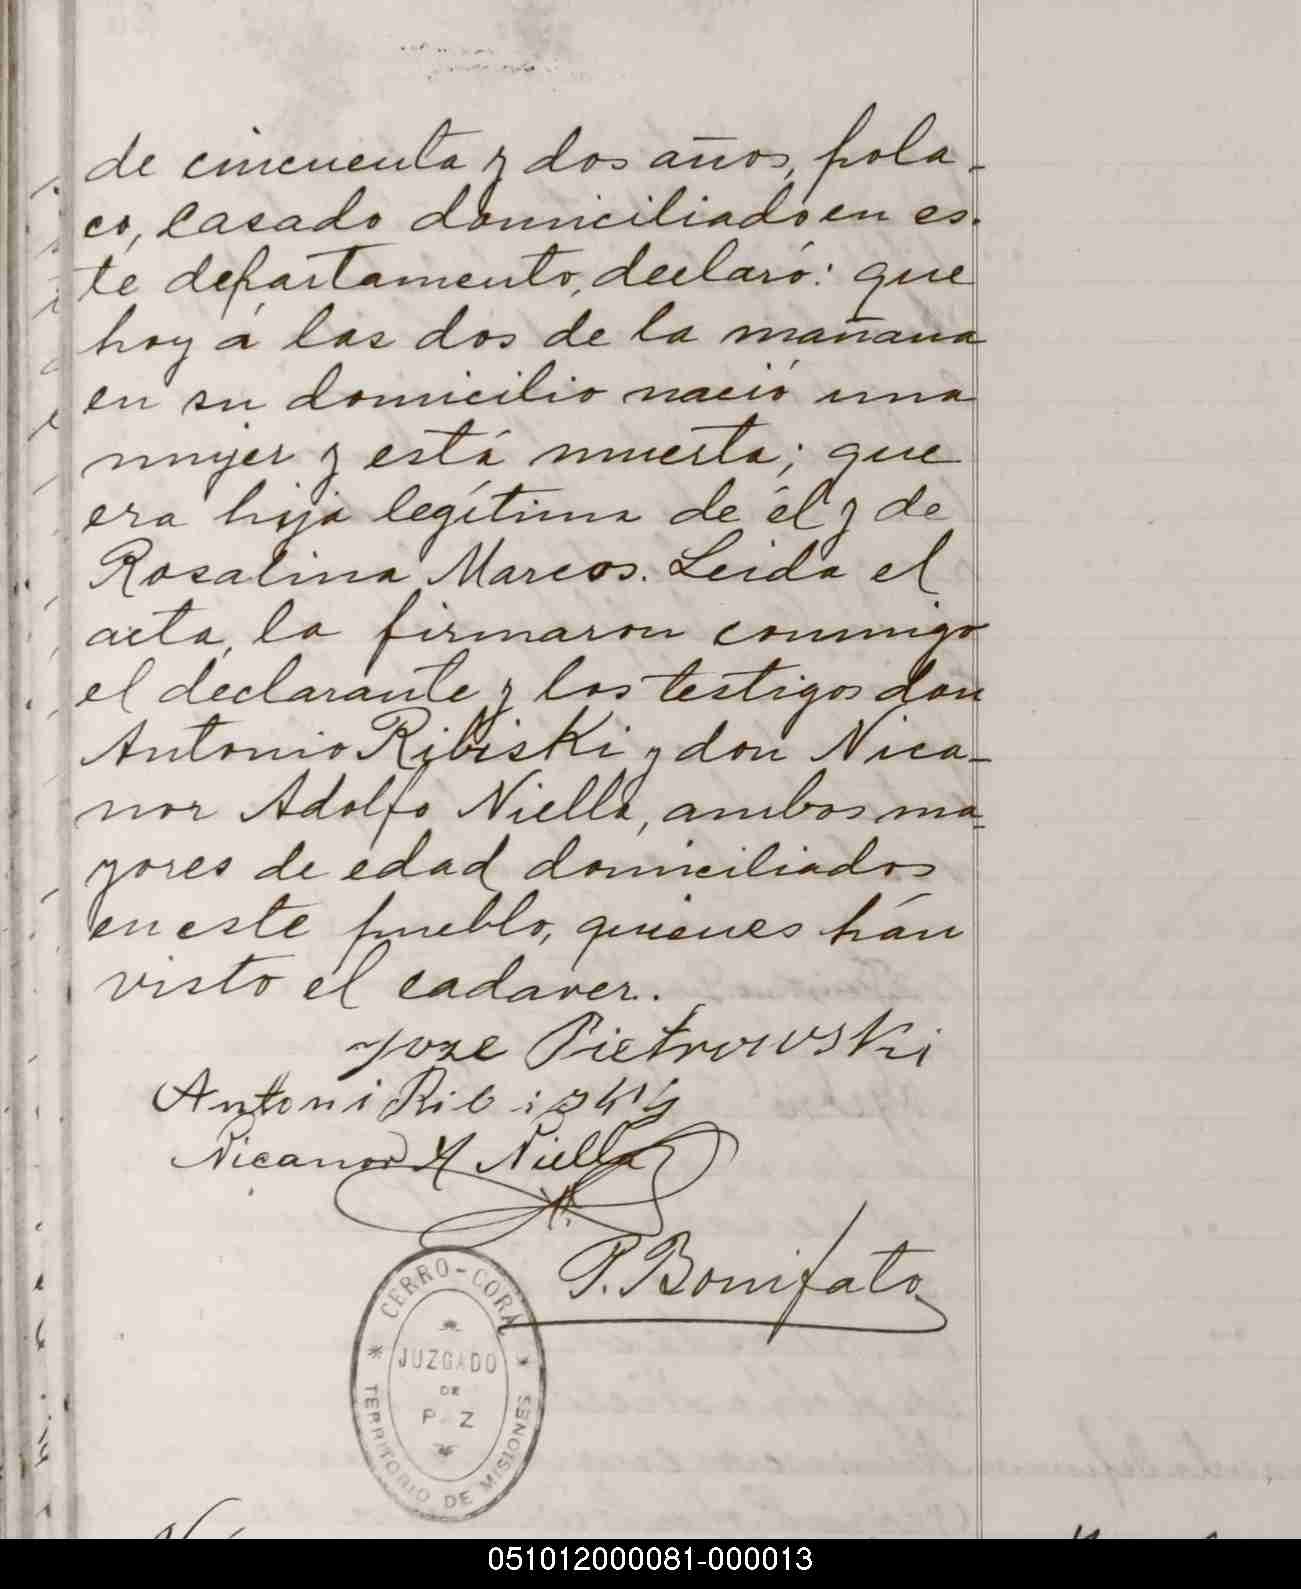 de cincuenta y dos años, pola-
co, casado domiciliado en es-
te departamento, declaró: que
hoy á las dos de la mañana
en su domicilio nació una
mujer y está muerta; que
era hija legítima de él y de
Rosalina Marcos. Leida el
acta, la firmaron conmigo
el declarante y los testigos don
Antonio Ribiski y don Nica-
nor Adolfo Niella, ambos ma-
yores de edad domiciliados
en este pueblo, quienes hán
visto el cadaver.
Joze Pietrowski
Antoni Ribiski
Nicanor A Niella
P. Bonifato
CERRO-CORÁ
JUZGADO
DE
PAZ
TERRITORIO DE MISIONES
051012000081-000013